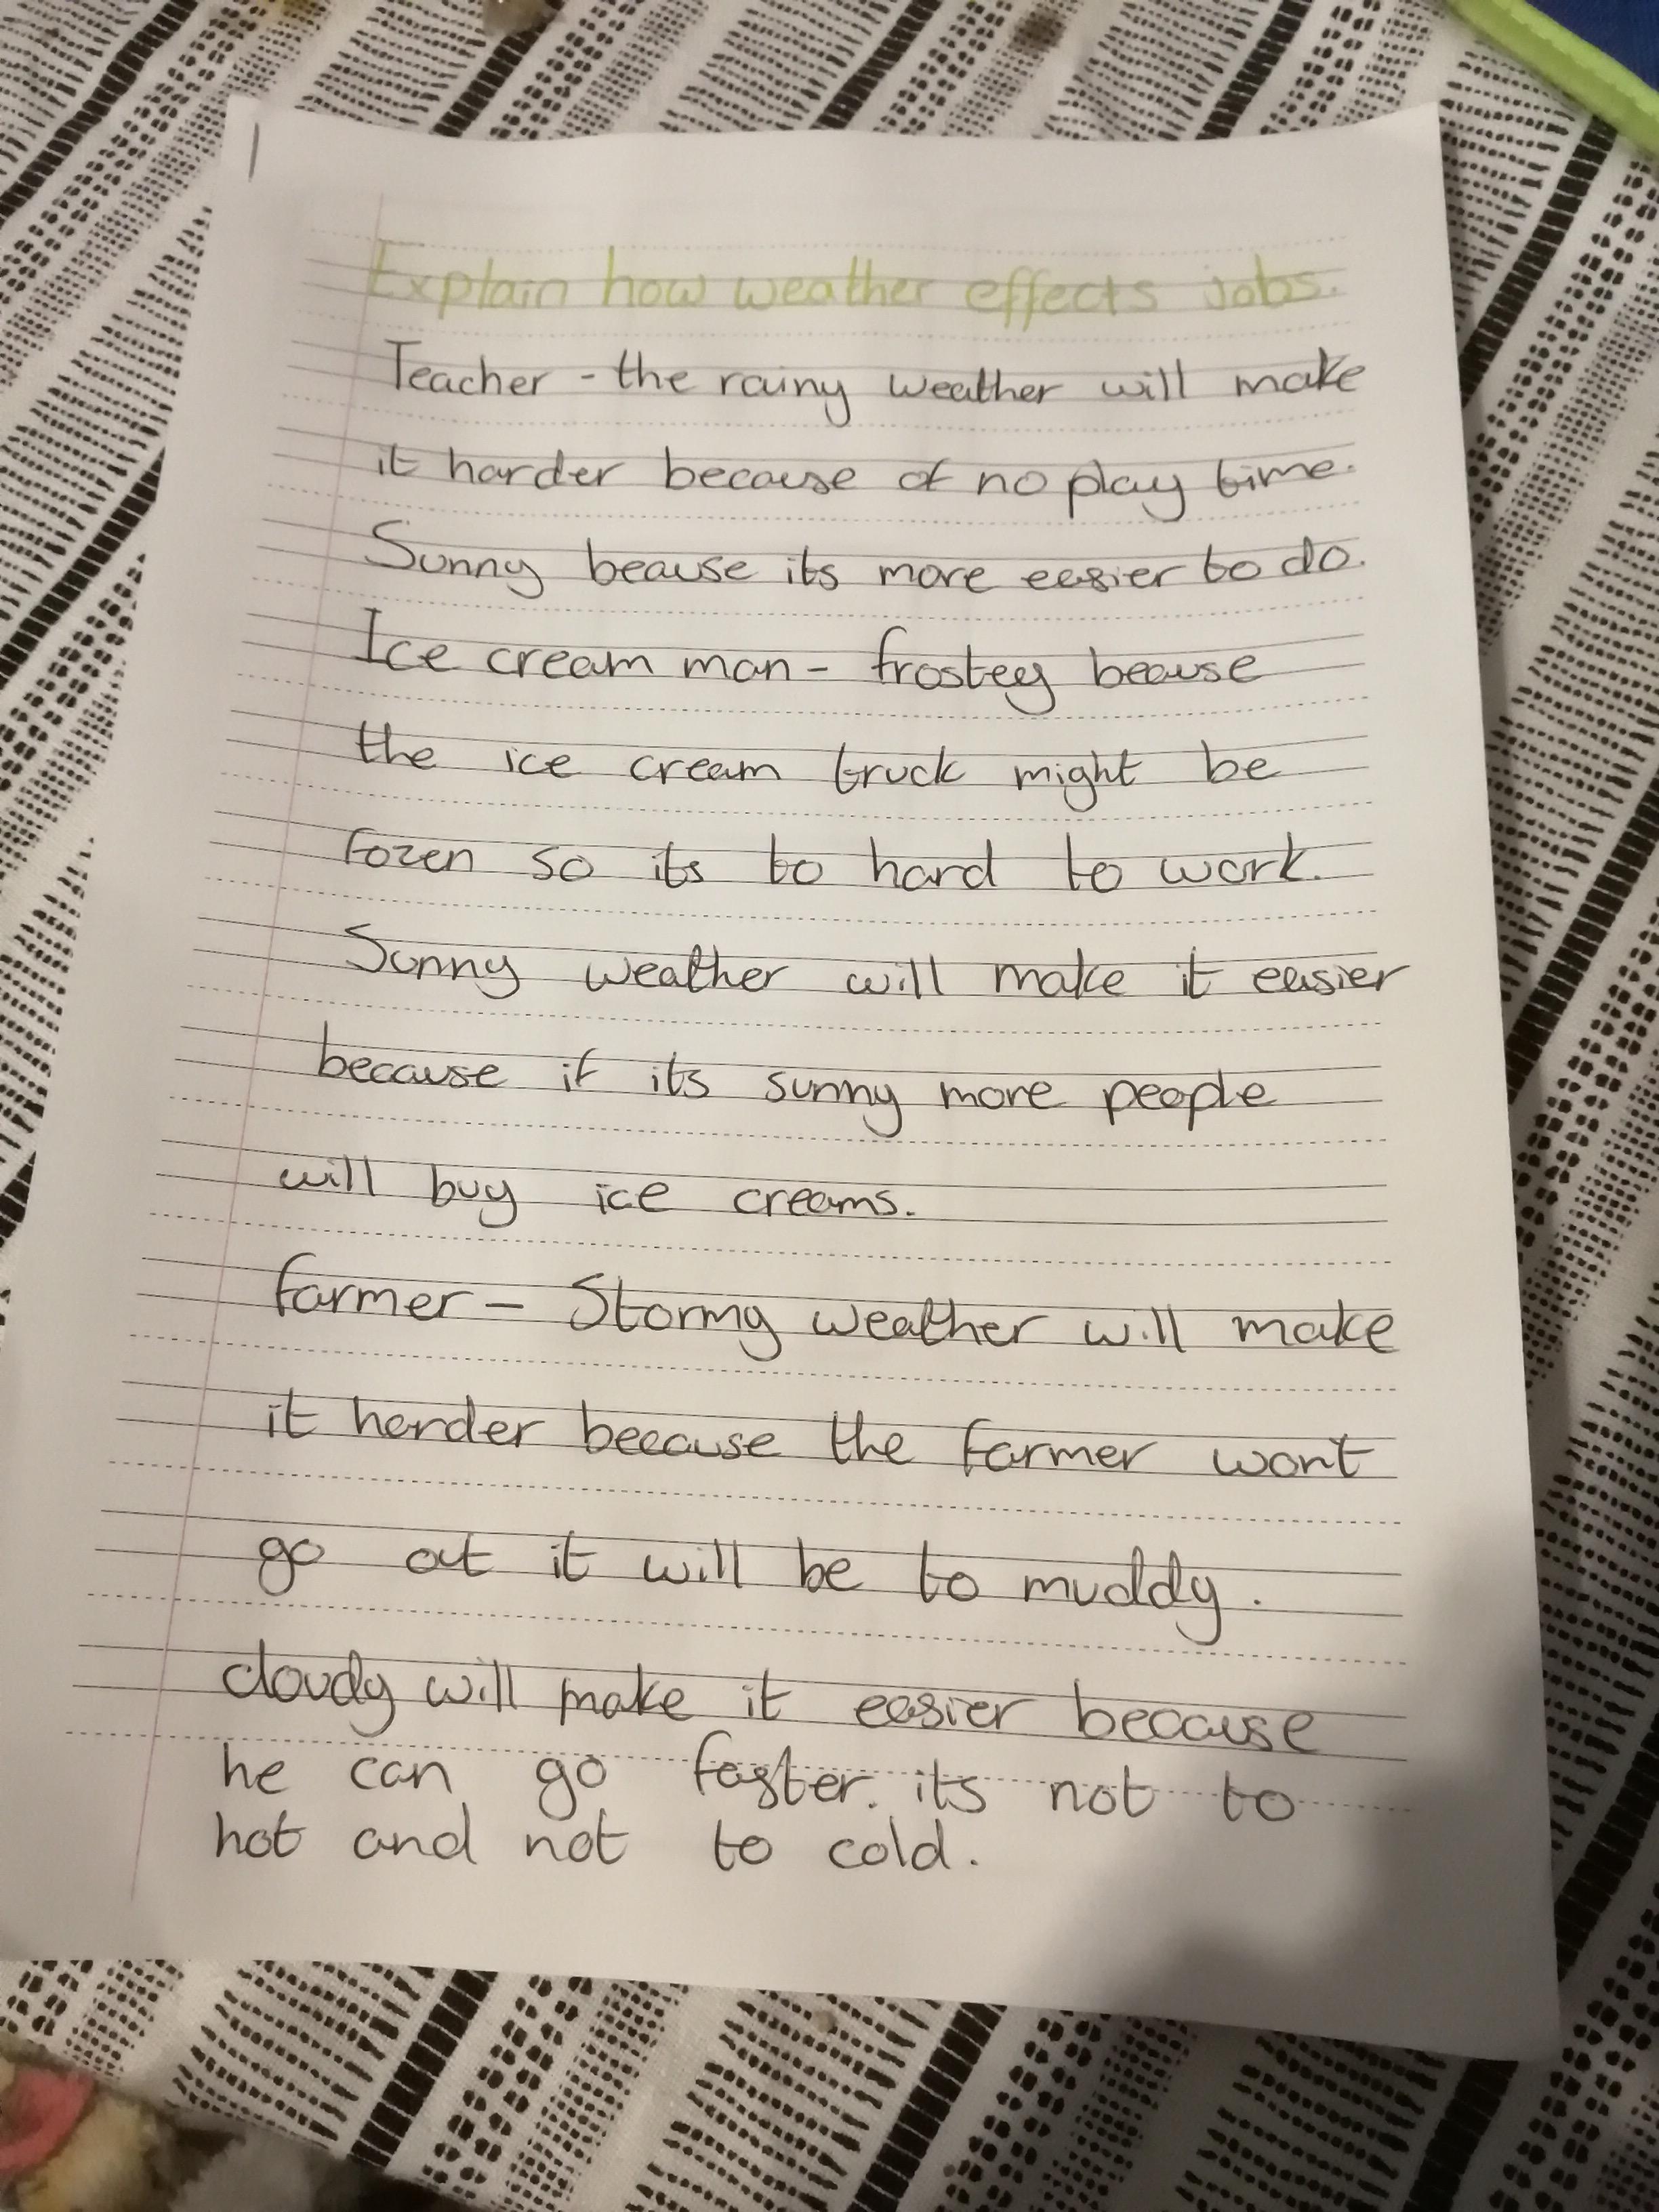 Explain how weather effects jobs.
Teacher - the rainy weather will make
it harder because of no play time.
Sunny beause its more easier to do.
Ice cream man - frostey beause
the ice cream truck might be
fozen so its to hard to work.
Sunny weather will make it easier
because if its sunny more people
will buy ice creams.
farmer - Stormy weather will make
it harder because the farmer wont
go out it will be to muddy.
cloudy will make it easier because
he can go faster. its not to
hot and not to cold.